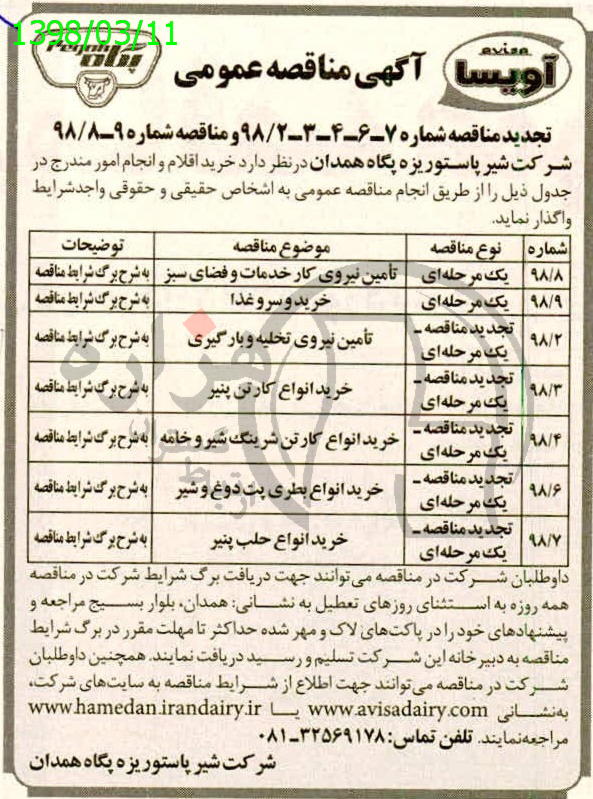 1398/03/11
Pegah
پگاه
avisa
آویسا
آگهی مناقصه عمومی
تجدید مناقصه شماره ۷-۶-۴-۳-۹۸/۲ و مناقصه شماره ۹-۹۸/۸
شرکت شیر پاستوریزه پگاه همدان در نظر دارد خرید اقلام و انجام امور مندرج در
جدول ذیل را از طریق انجام مناقصه عمومی به اشخاص حقیقی و حقوقی واجد شرایط
واگذار نماید.
شماره نوع مناقصه موضوع مناقصه توضیحات
۹۸/۸ یک مرحله‌ای تأمین نیروی کار خدمات و فضای سبز به شرح برگ شرایط مناقصه
۹۸/۹ یک مرحله‌ای خرید و سرو غذا به شرح برگ شرایط مناقصه
۹۸/۲ تجدید مناقصه - یک مرحله‌ای تأمین نیروی تخلیه و بارگیری به شرح برگ شرایط مناقصه
۹۸/۳ تجدید مناقصه - یک مرحله‌ای خرید انواع کارتن پنیر به شرح برگ شرایط مناقصه
۹۸/۴ تجدید مناقصه - یک مرحله‌ای خرید انواع کارتن شرینک شیر و خامه به شرح برگ شرایط مناقصه
۹۸/۶ تجدید مناقصه - یک مرحله‌ای خرید انواع بطری پت دوغ و شیر به شرح برگ شرایط مناقصه
۹۸/۷ تجدید مناقصه - یک مرحله‌ای خرید انواع حلب پنیر به شرح برگ شرایط مناقصه
داوطلبان شرکت در مناقصه می‌توانند جهت دریافت برگ شرایط شرکت در مناقصه
همه روزه به استثنای روزهای تعطیل به نشانی: همدان، بلوار بسیج مراجعه و
پیشنهادهای خود را در پاکت‌های لاک و مهر شده حداکثر تا مهلت مقرر در برگ شرایط
مناقصه به دبیرخانه این شرکت تسلیم و رسید دریافت نمایند. همچنین داوطلبان
شرکت در مناقصه می‌توانند جهت اطلاع از شرایط مناقصه به سایت‌های شرکت،
به‌نشانی www.avisadairy.com یا www.hamedan.irandairy.ir
مراجعه نمایند. تلفن تماس: ۳۲۵۶۹۱۷۸-۰۸۱
شرکت شیر پاستوریزه پگاه همدان
هزاره